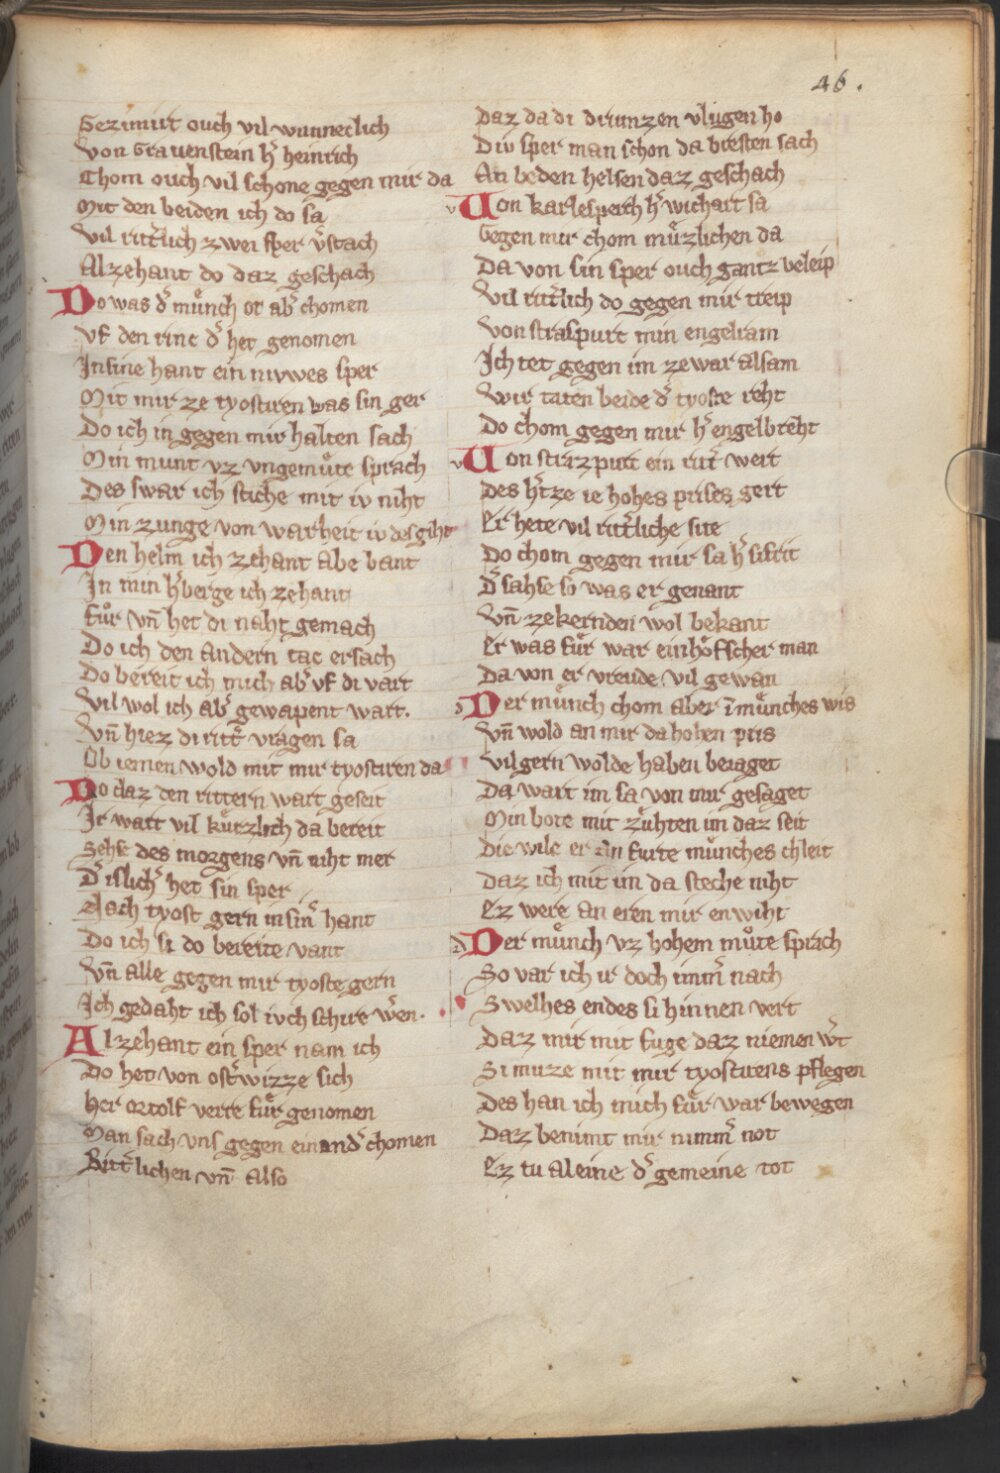 46.
Gezimirt ouch vil wunneclich
Von Grauenstein h̾ heinrich
Chom ouch vil schone gegen mir da
Mit den beiden ich do sa
Vil ritt̾lich zwei sper v̾stach
Alzehant do daz geschach
Do was d̾ muͤnch ot ab̾ chomen
Vf den rinc d̾ het genomen
In sine hant ein nivwes sper
Mit mir ze tyostiren was sin ger
Do ich in gegen mir halten sach
Min munt vz vngemuͤte sprach
Des swar ich stiche mit iv niht
Min zunge von warheit iv des giht
Den helm ich zehant abe bant
In min h̾berge ich zehant
fuͤr vn̄ het di naht gemach
Do ich den andern tac ersach
Do bereit ich mich ab̾ vf di vart
Vil wol ich ab̾ gewapent wart.
Vn̄ hiez di ritt̾ vragen sa
Ob iemen wold mit mir tyostiren da
Do daz den rittern wart geseit
Ir wart vil kuͤrzlich da bereit
Sehse des morgens vn̄ niht mer
D̾ islich̾ het sin sper
Nach tyost gern in sin̾ hant
Do ich si do bereite vant
Vn̄ alle gegen mir tyoste gern
Ich gedaht ich sol ivch schire w̾en.
Alzehant ein sper nam ich
Do het von ost̾wizze sich
Her ortolf verre fuͤr genomen
Man sach vns gegen einand̾ chomen
Ritt̾lichen vn̄ also
Daz da di drumzen vlugen ho
Div sper man schon da bresten sach
An beden helsen daz geschach
v Von karlesperch h̾ wichart sa
Gegen mir chom muͤzlichen da
Da von sin sper ouch gantz beleip
Vil ritt̾lich do gegen mir treip
Von straspurt min engelram
Ich tet gegen im zewar alsam
Wir taten beide d̾ tyoste reht
Do chom gegen mir h̾ engelbreht
v Von strazpurt ein ritt̾ wert
Des h̾tze ie hohes prises gert
Er hete vil ritt̾liche site
Do chom gegen mir sa h̾ sifrit
D̾ sahse so was er genant
Vn̄ ze kernden wol bekant
Er was fuͤr war ein hoͤfscher man
Da von er vreude vil gewan
d Der muͤnch chom aber ī muͤnches wis
Vn̄ wold an mir da hohen pris
Vil gern wolde haben beiaget
Da wart im sa von mir gesaget
Min bote mit zuͤhten im daz seit
Die wile er an furte muͤnches chleit
Daz ich mit im da steche niht
Ez were an eren mir enwiht
d Der muͤnch vz hohem muͤte sprach
So var ich ir doch imm̾ nach
Swelhes endes si hinnen vert
Daz mir mit fuge daz niemen w̾t
Si muze mit mir tyostirens pflegen
Des han ich mich fuͤr war bewegen
Daz benimt mir nimm̾ not
Ez tu aleine d̾ gemeine tot